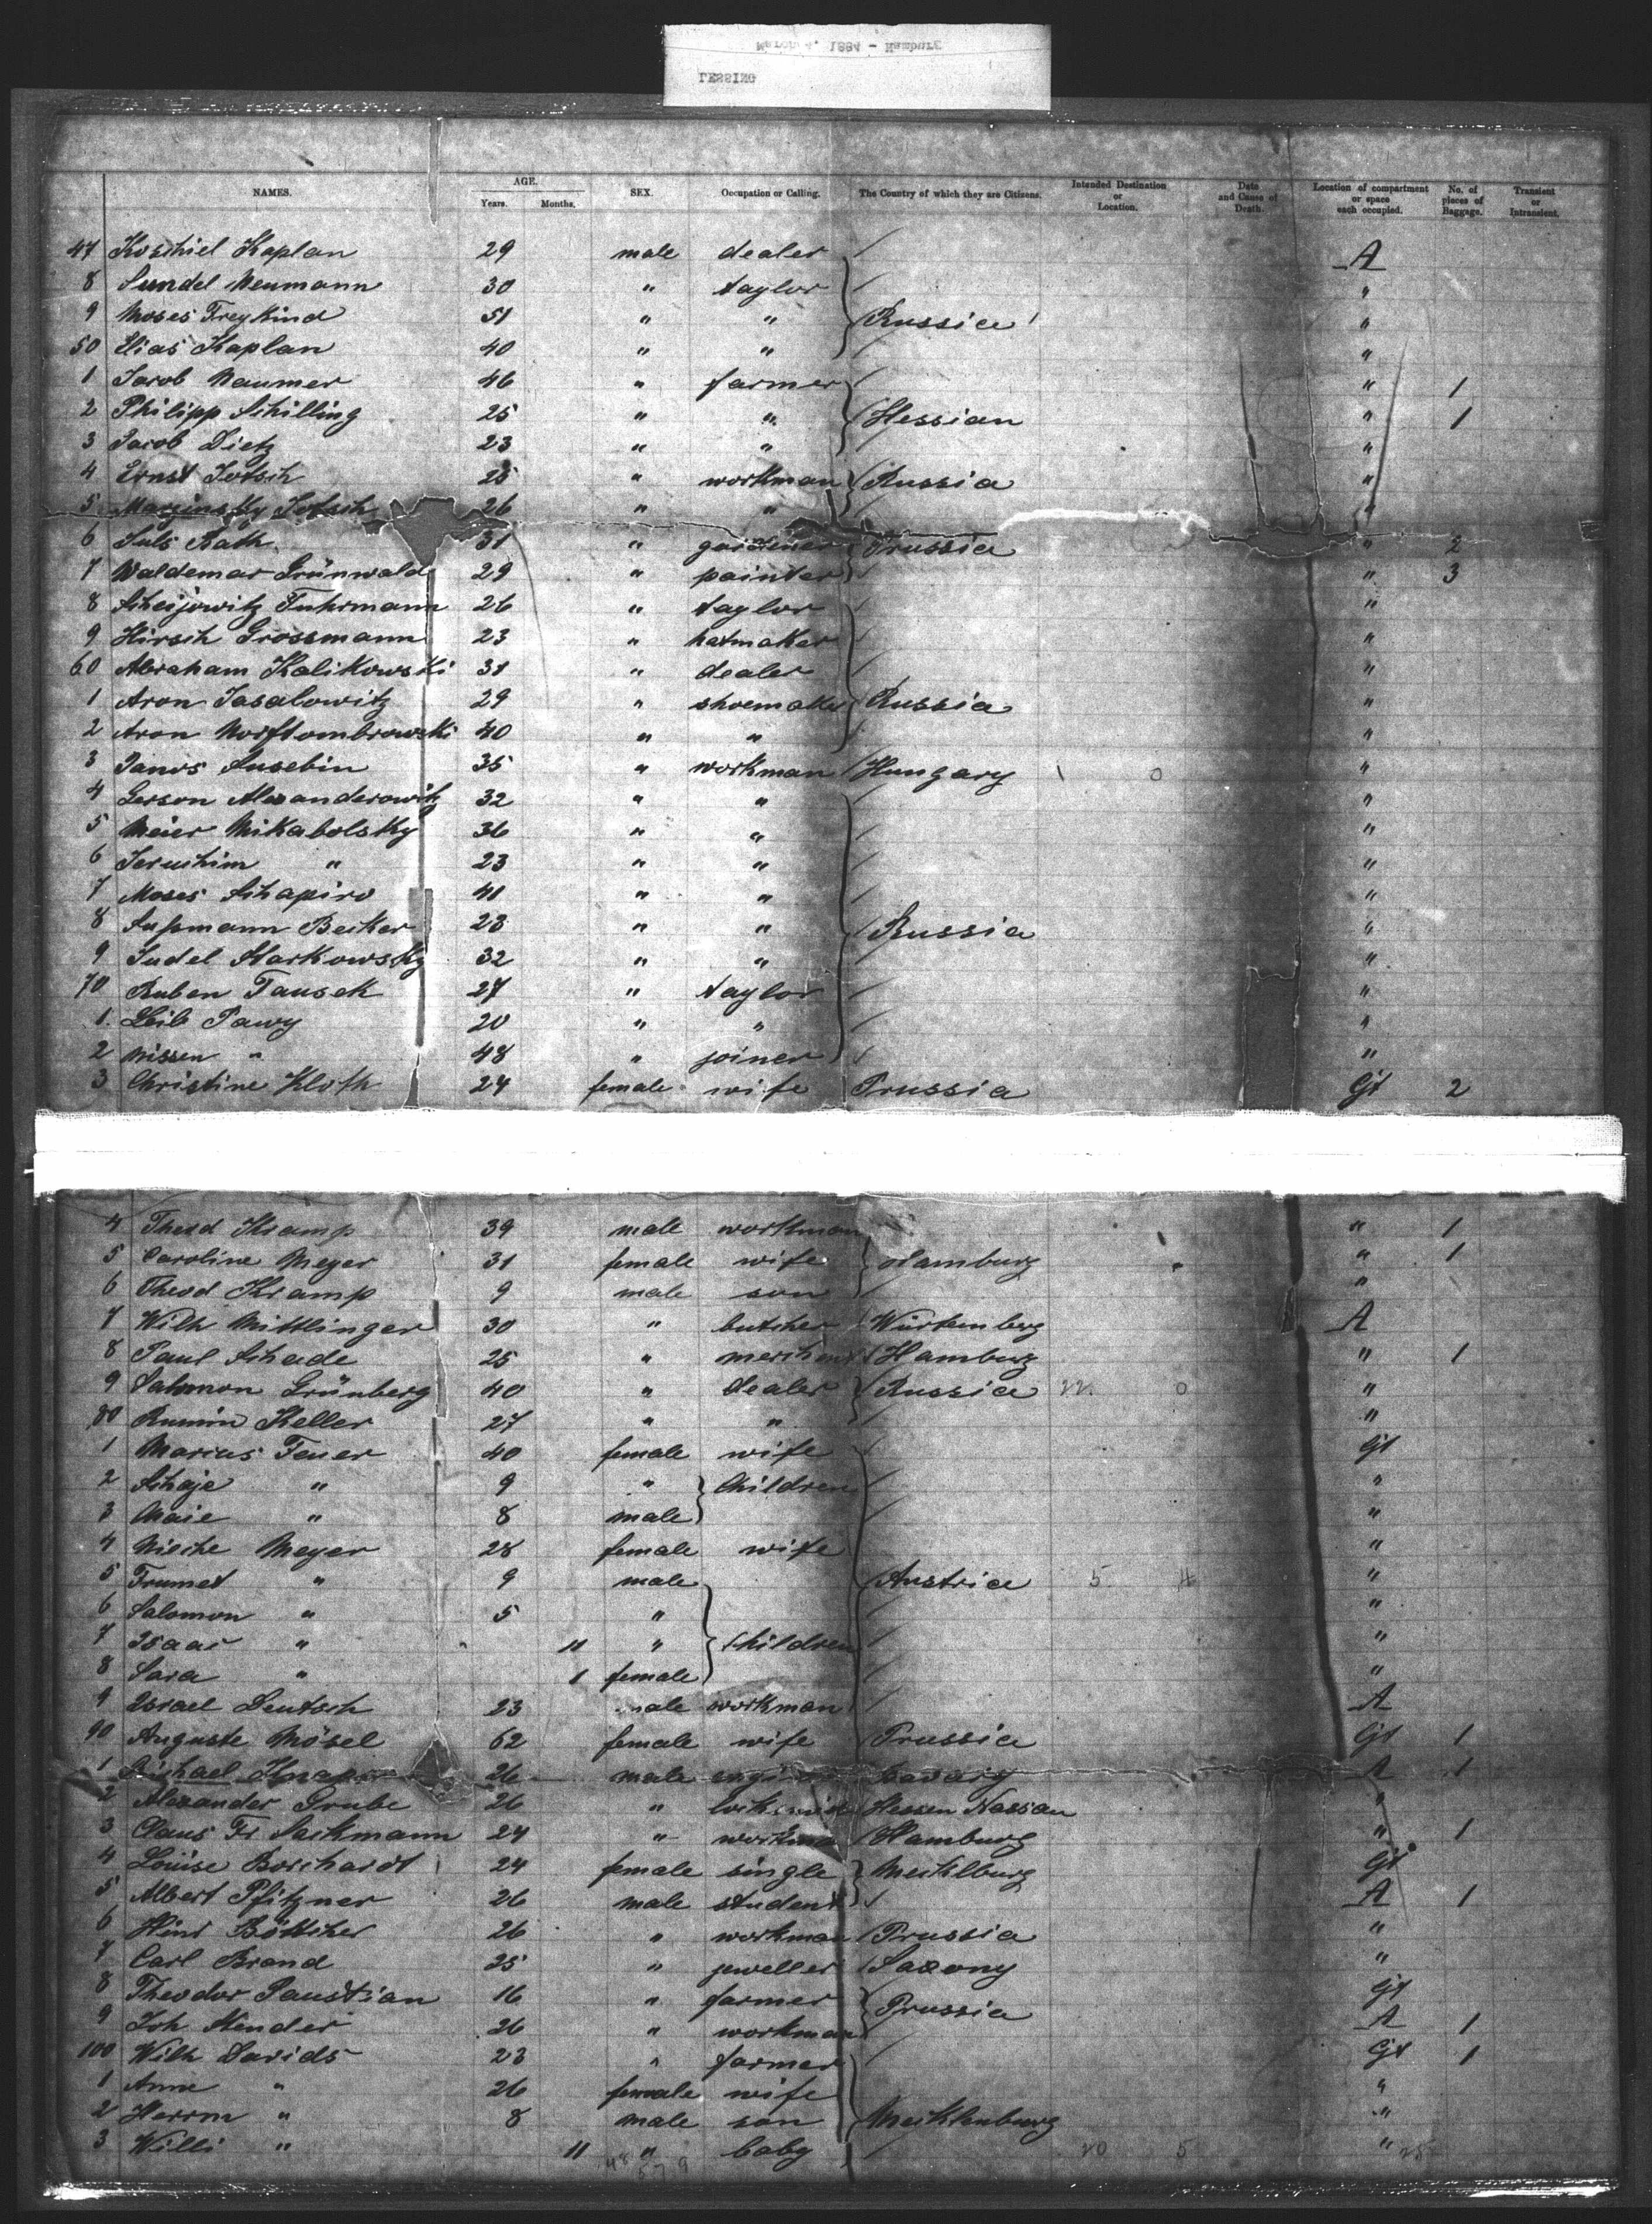 March 4, 1884 - Hamburg
LESSING
NAMES. AGE. Years. Months. SEX. Occupation or Calling. The Country of which they are Citizens. Intended Destination or Location. Date and Cause of Death. Location of compartment or space each occupied. No. of pieces of Baggage. Transient or Intransient.
47 Koschiel Kaplan 29 male dealer A
8 Sundel Neumann 30 " taylor "
9 Moses Freykind 51 " " Russia "
50 Elias Kaplan 40 " " "
1 Jacob Naumer 46 " farmer " 1
2 Philipp Schilling 25 " " Hessian " 1
3 Jacob Dietz 23 " " "
4 Ernst Jotsch 25 " workman Russia "
5 Marzinsky Jotsch 26 " " "
6 Juls Rath 31 " gardener Prussia " 2
7 Waldemar Grünwald 29 " painter " 3
8 Scheijowitz Fuhrmann 26 " taylor "
9 Hirsch Grossmann 23 " hatmaker "
60 Abraham Kalikowski 31 " dealer "
1 Aron Jasalowitz 29 " shoemaker Russia "
2 Aron 40 " " "
3 Janos Susebin 35 " workman Hungary "
4 Gerson Alexanderowitz 32 " " "
5 Meier Mikabolsky 36 " " "
6 Jeruchim " 23 " " "
7 Moses Schapiro 41 " " "
8 Sussmann Becker 23 " " Russia "
9 Judel Markowsky 32 " " "
70 Ruben Tausek 27 " taylor "
1 Leib Pawy 20 " " "
2 Nissen " 48 " joiner "
3 Christine Kloth 24 female wife Prussia Gt 2
4 Theod Kramp 39 male workman " 1
5 Caroline Meyer 31 female wife Hamburg " 1
6 Theod Kramp 9 male son "
7 Wilh Mittlinger 30 " butcher Würtemberg A
8 Paul Schade 25 " merchant Hamburg " 1
9 Salomon Grünberg 40 " dealer Russia "
80 Rumin Keller 27 " " "
1 Marcus Feuer 40 female wife Gt
2 Schaje " 9 " Children "
3 Maie " 8 male "
4 Niesche Meyer 28 female wife "
5 Frumet " 9 male Austria "
6 Salomon " 5 " "
7 Isaac " 11 " Children "
8 Sara " 1 female "
9 Israel Deutsch 23 male workman A
90 Auguste Mösel 62 female wife Prussia Gt 1
1 Michael Knapp 26 male Bavary A 1
2 Alexander Grube 26 " locksmith Hessen Nassau "
3 Claus Fr Sackmann 24 " workman Hamburg " 1
4 Louise Borchardt 24 female single Mecklburg Gt
5 Albert Pfitzner 26 male student A 1
6 Hinr Böttcher 26 " workman Prussia "
7 Carl Brand 25 " jeweller Saxony "
8 Theodor Paustian 16 " farmer Prussia Gt
9 Joh Stender 26 " workman A 1
100 Wilh Davids 23 " farmer Gt 1
1 Anne " 26 female wife "
2 Herrm " 8 male son Mecklenburg "
3 Willi " 11 " baby "